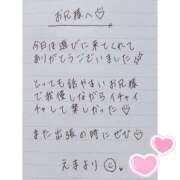 お兄様へ♡
今日は遊びに来てくれて
ありがとうございました
とっても話やすいお兄様
で我慢しながらイチャイ
チャして楽しかった
また出張の時にぜひ♡
えまより